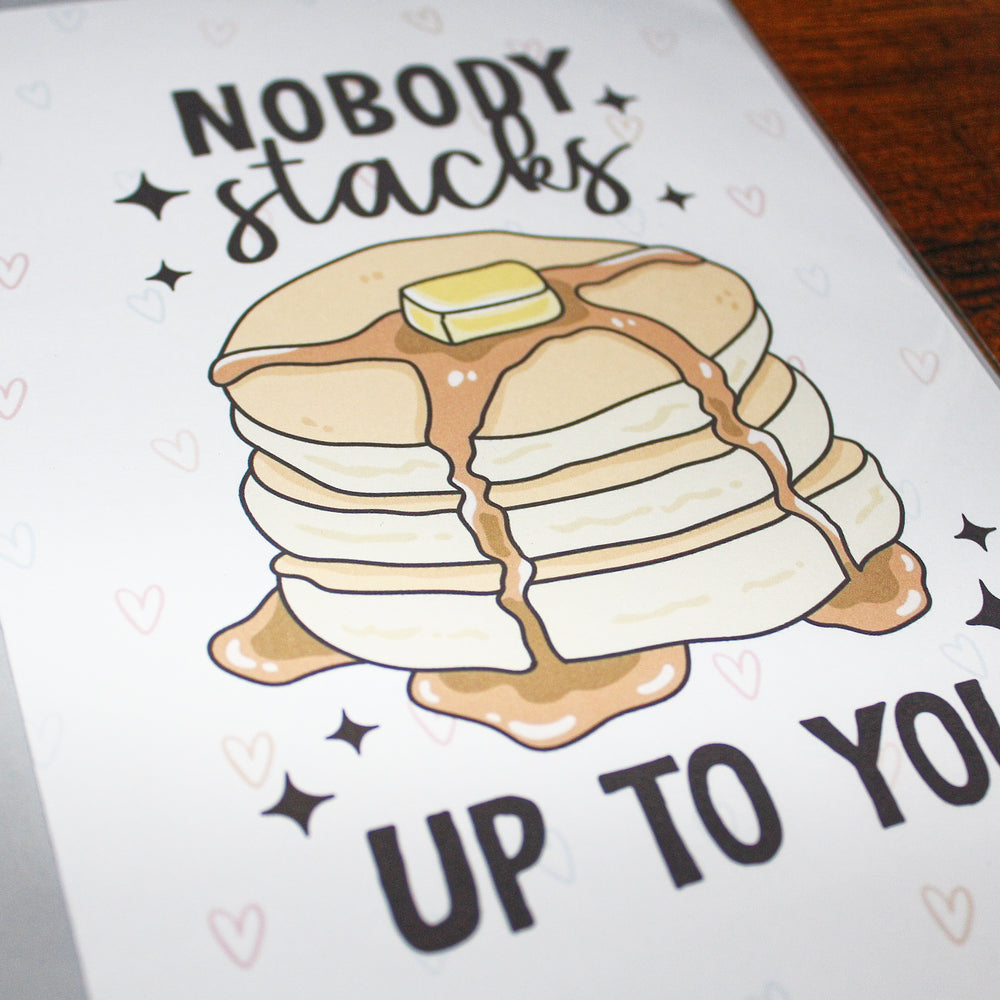 NOBODY
stacks
UP TO YOU